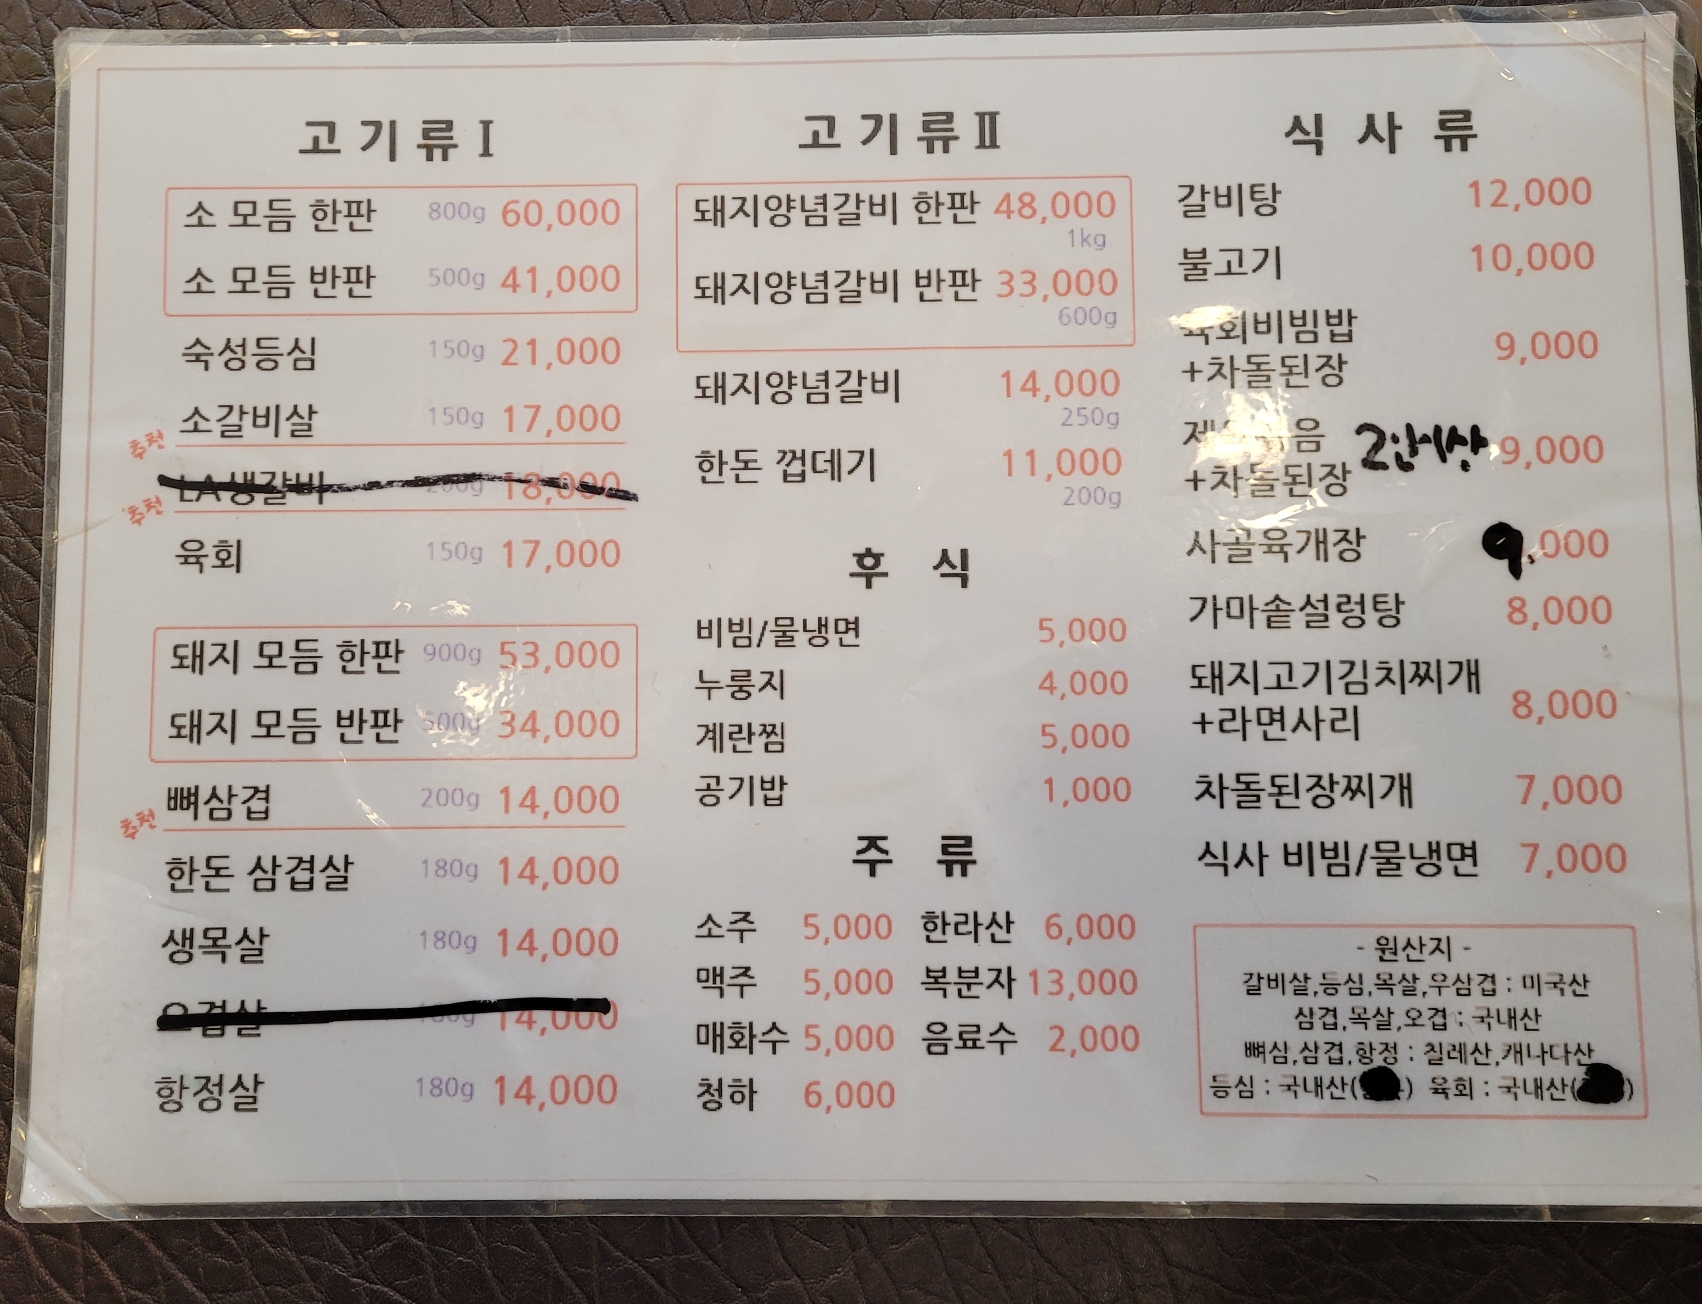 고기류Ⅰ
소 모듬 한판 800g 60,000
소 모듬 반판 500g 41,000
숙성등심 150g 21,000
소갈비살 150g 17,000
추천
LA생갈비 200g 18,000
추천
육회 150g 17,000
돼지 모듬 한판 900g 53,000
돼지 모듬 반판 500g 34,000
뼈삼겹 200g 14,000
추천
한돈 삼겹살 180g 14,000
생목살 180g 14,000
오겹살 180g 14,000
항정살 180g 14,000
고기류Ⅱ
돼지양념갈비 한판 48,000
1kg
돼지양념갈비 반판 33,000
600g
돼지양념갈비 14,000
250g
한돈 껍데기 11,000
200g
후 식
비빔/물냉면 5,000
누룽지 4,000
계란찜 5,000
공기밥 1,000
주 류
소주 5,000 한라산 6,000
맥주 5,000 복분자 13,000
매화수 5,000 음료수 2,000
청하 6,000
식 사 류
갈비탕 12,000
불고기 10,000
육회비빔밥
+차돌된장 9,000
제육볶음
+차돌된장 2인이상 9,000
사골육개장 9,000
가마솥설렁탕 8,000
돼지고기김치찌개
+라면사리 8,000
차돌된장찌개 7,000
식사 비빔/물냉면 7,000
- 원산지 -
갈비살,등심,목살,우삼겹 : 미국산
삼겹,목살,오겹 : 국내산
뼈삼,삼겹,항정 : 칠레산,캐나다산
등심 : 국내산( ) 육회 : 국내산( )